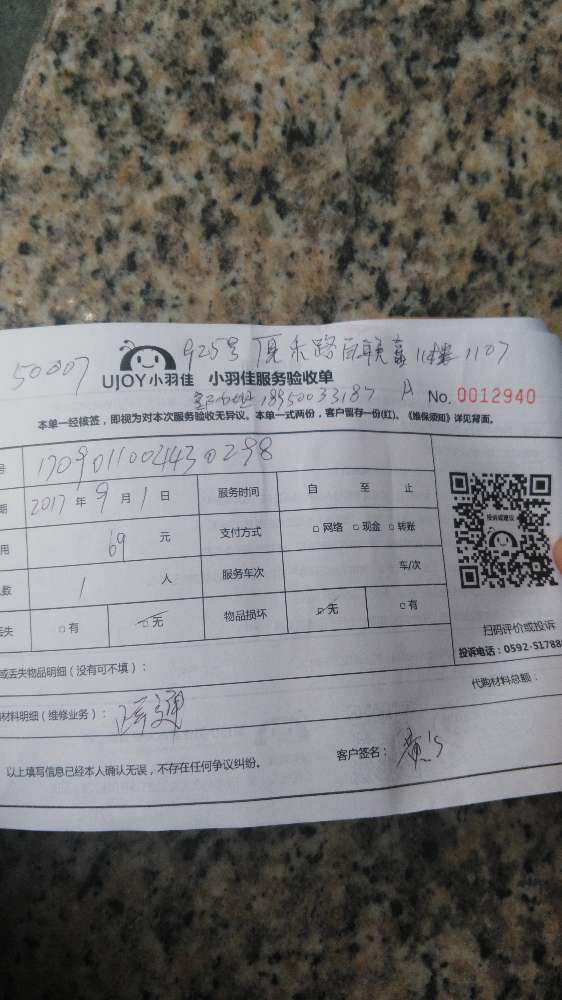 50007 925号
11楼 1107
UJOY小羽佳 小羽佳服务验收单
18950033187 A No. 0012940
本单一经核签，即视为对本次服务验收无异议。本单一式两份，客户留存一份(红)。《维保须知》详见背面。
号 17090110024430298
期 2017年9月1日 服务时间 自 至 止
用 69 元 支付方式 □网络 □现金 □转账
人数 1 人 服务车次 车/次
丢失 □有 □无 物品损坏 □无 □有
投诉或建议
扫码评价或投诉
投诉电话：0592-51788
或丢失物品明细（没有可不填）：
代购材料总额：
材料明细（维修业务）： 疏通
客户签名： 黄's
以上填写信息已经本人确认无误，不存在任何争议纠纷。